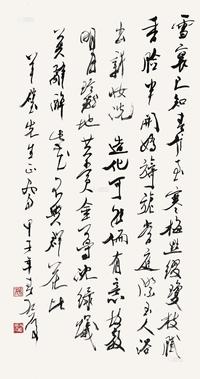 雪里已知春信至寒梅点缀琼枝腻
香脸半开娇旖旎当庭际玉人浴
出新妆洗造化可能偏有意故教
明月玲珑地共赏金尊沈绿蚁
莫辞醉此花不与群花比
先生正
甲子年